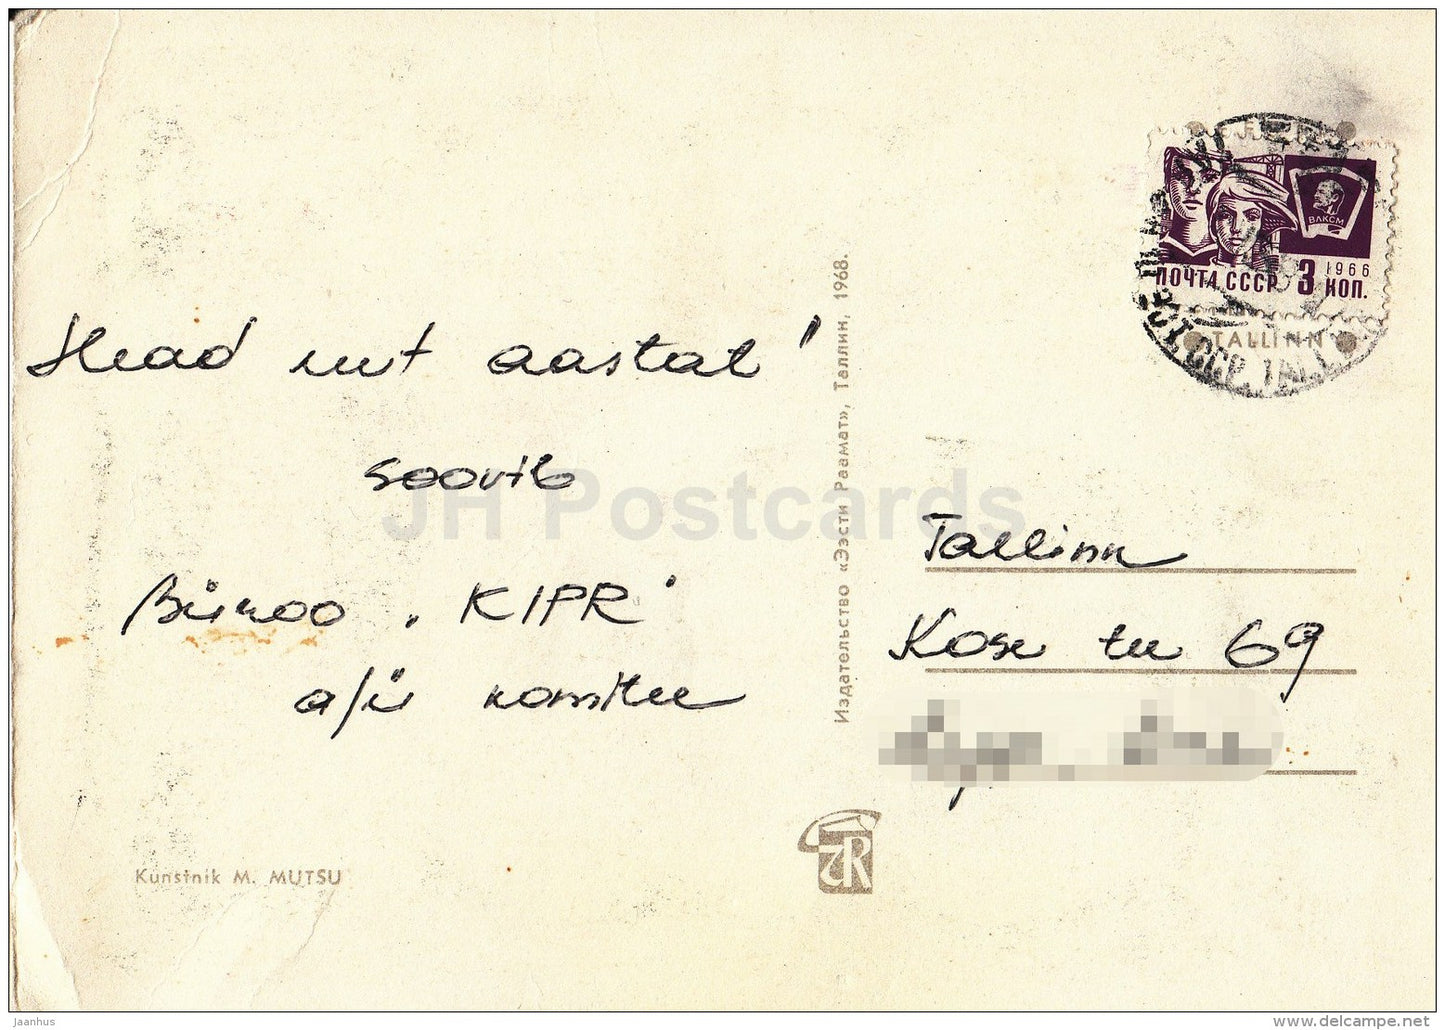 Head uut aastat!
soovib
Büroo "KIPR"
a/ü komitee
Kunstnik M. MUTSU
Издательство «Ээсти Раамат», Таллин, 1968.
ВЛКСМ
1966
ПОЧТА СССР 3 КОП.
TALLINN
Tallinn
Kose tee 69
JH Postcards
Jaanhus
delcampe.net